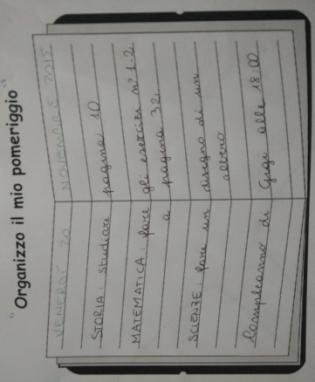 "Organizzo il mio pomeriggio"
VENERDÌ 20 NOVEMBRE 2015
STORIA: studiare pagina 10
MATEMATICA: fare gli esercizi n° 1-2
a pagina 32
SCIENZE: fare un disegno di un
albero
Compleanno di Gigi alle 18.00